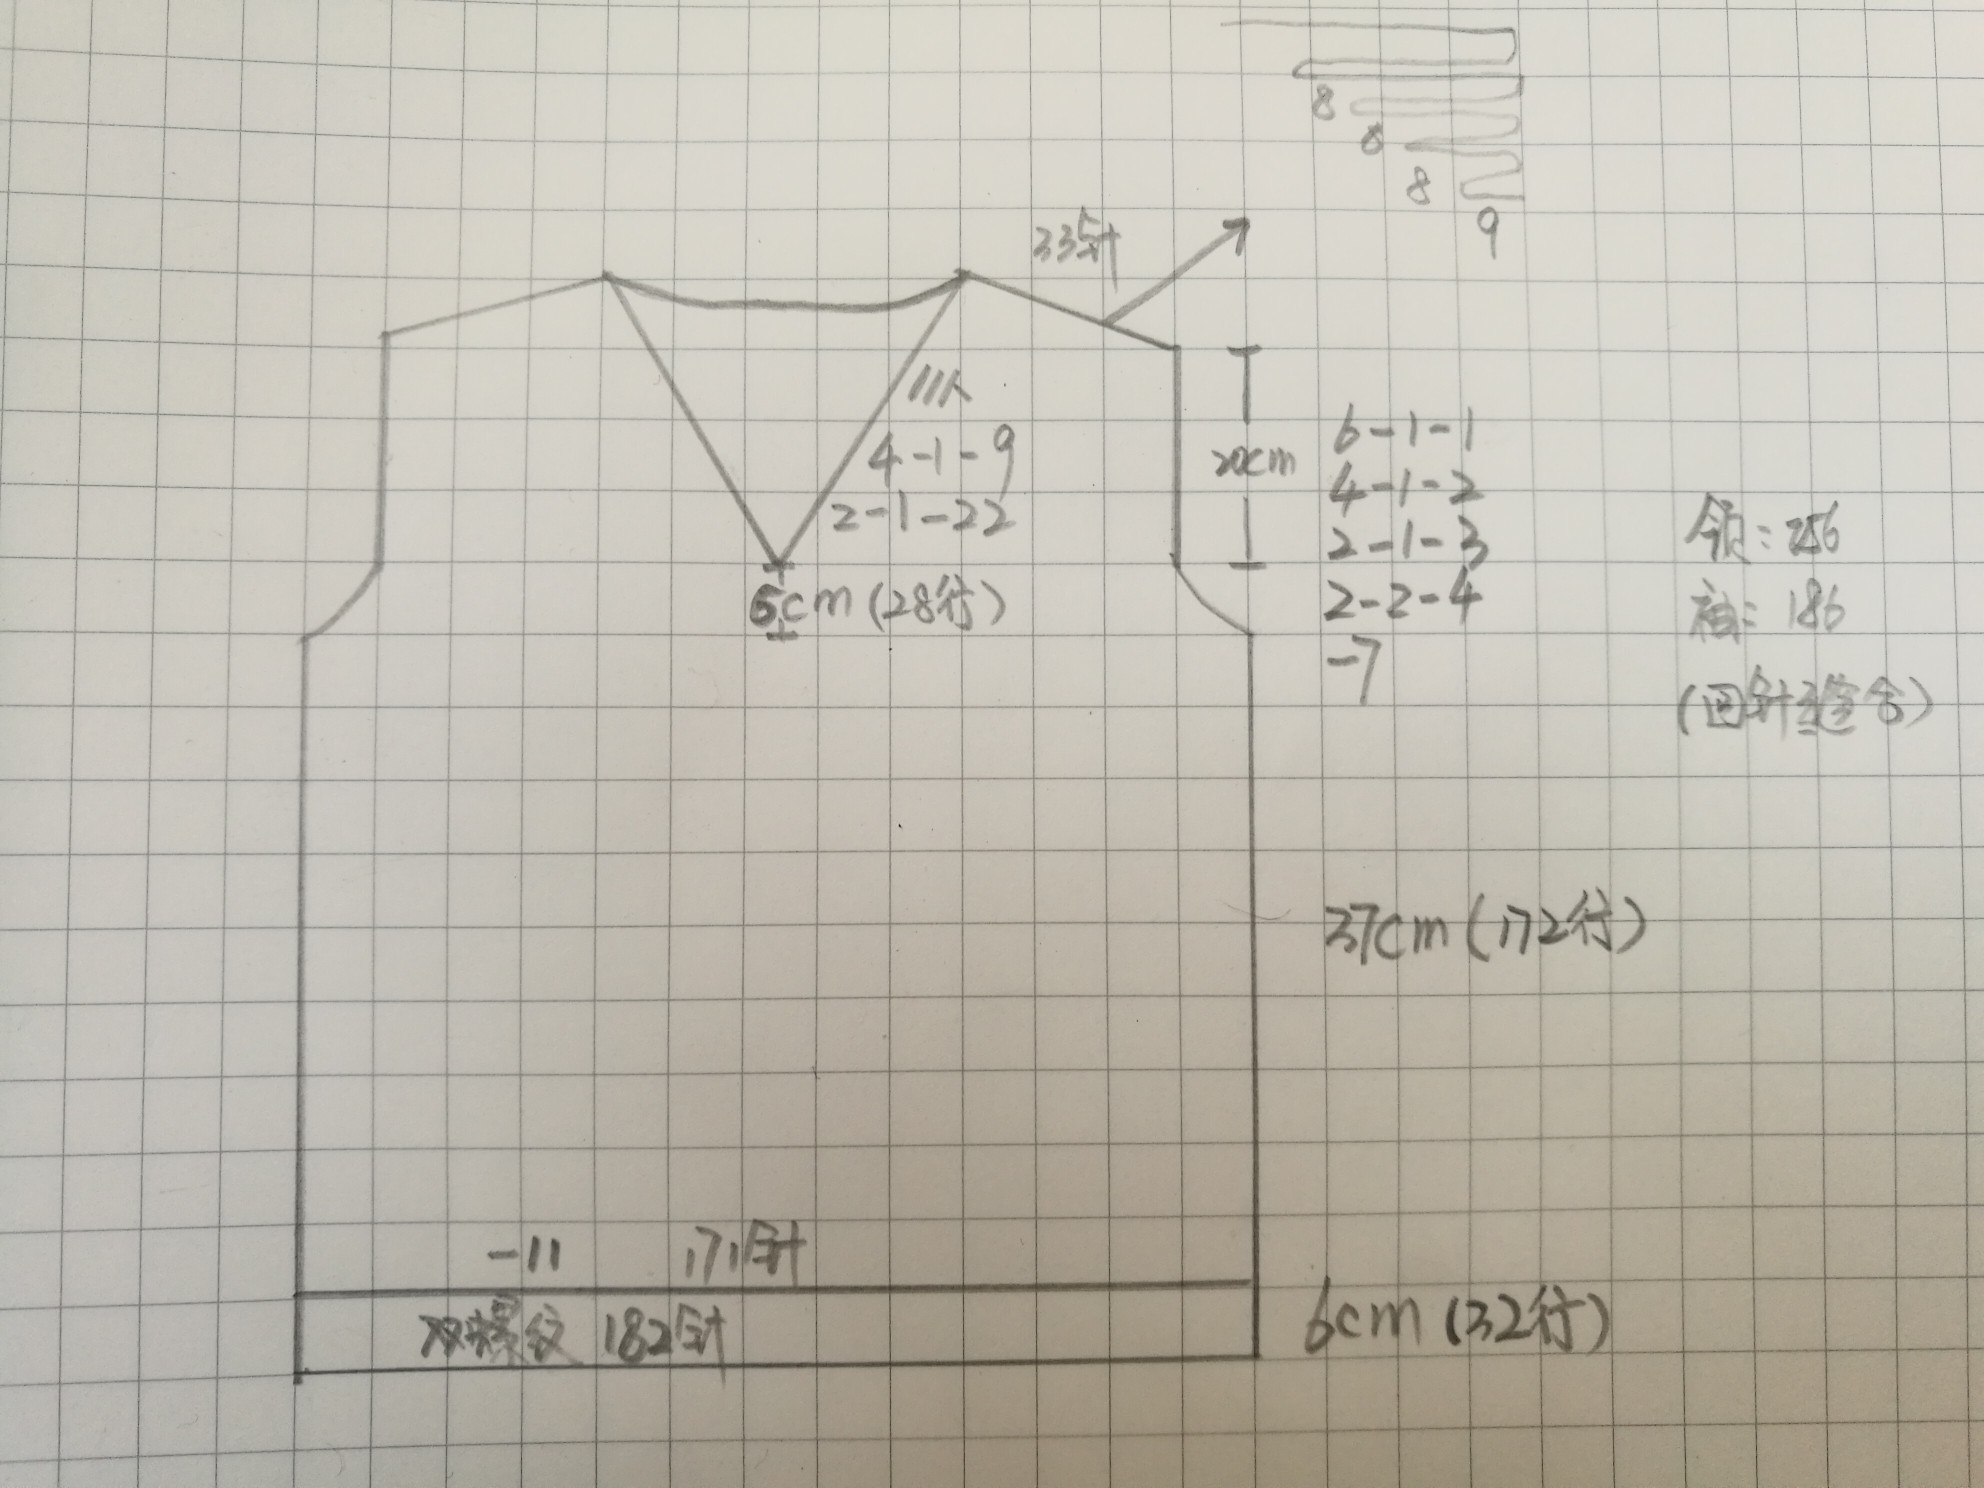 8
8
8
9
33针
川人
4-1-9
2-1-22
6cm(28行)
20cm
6-1-1
4-1-2
2-1-3
2-2-4
-7
领:256
袖:186
(回针缝合)
37cm(172行)
-11 171针
双螺纹 182针
6cm(32行)